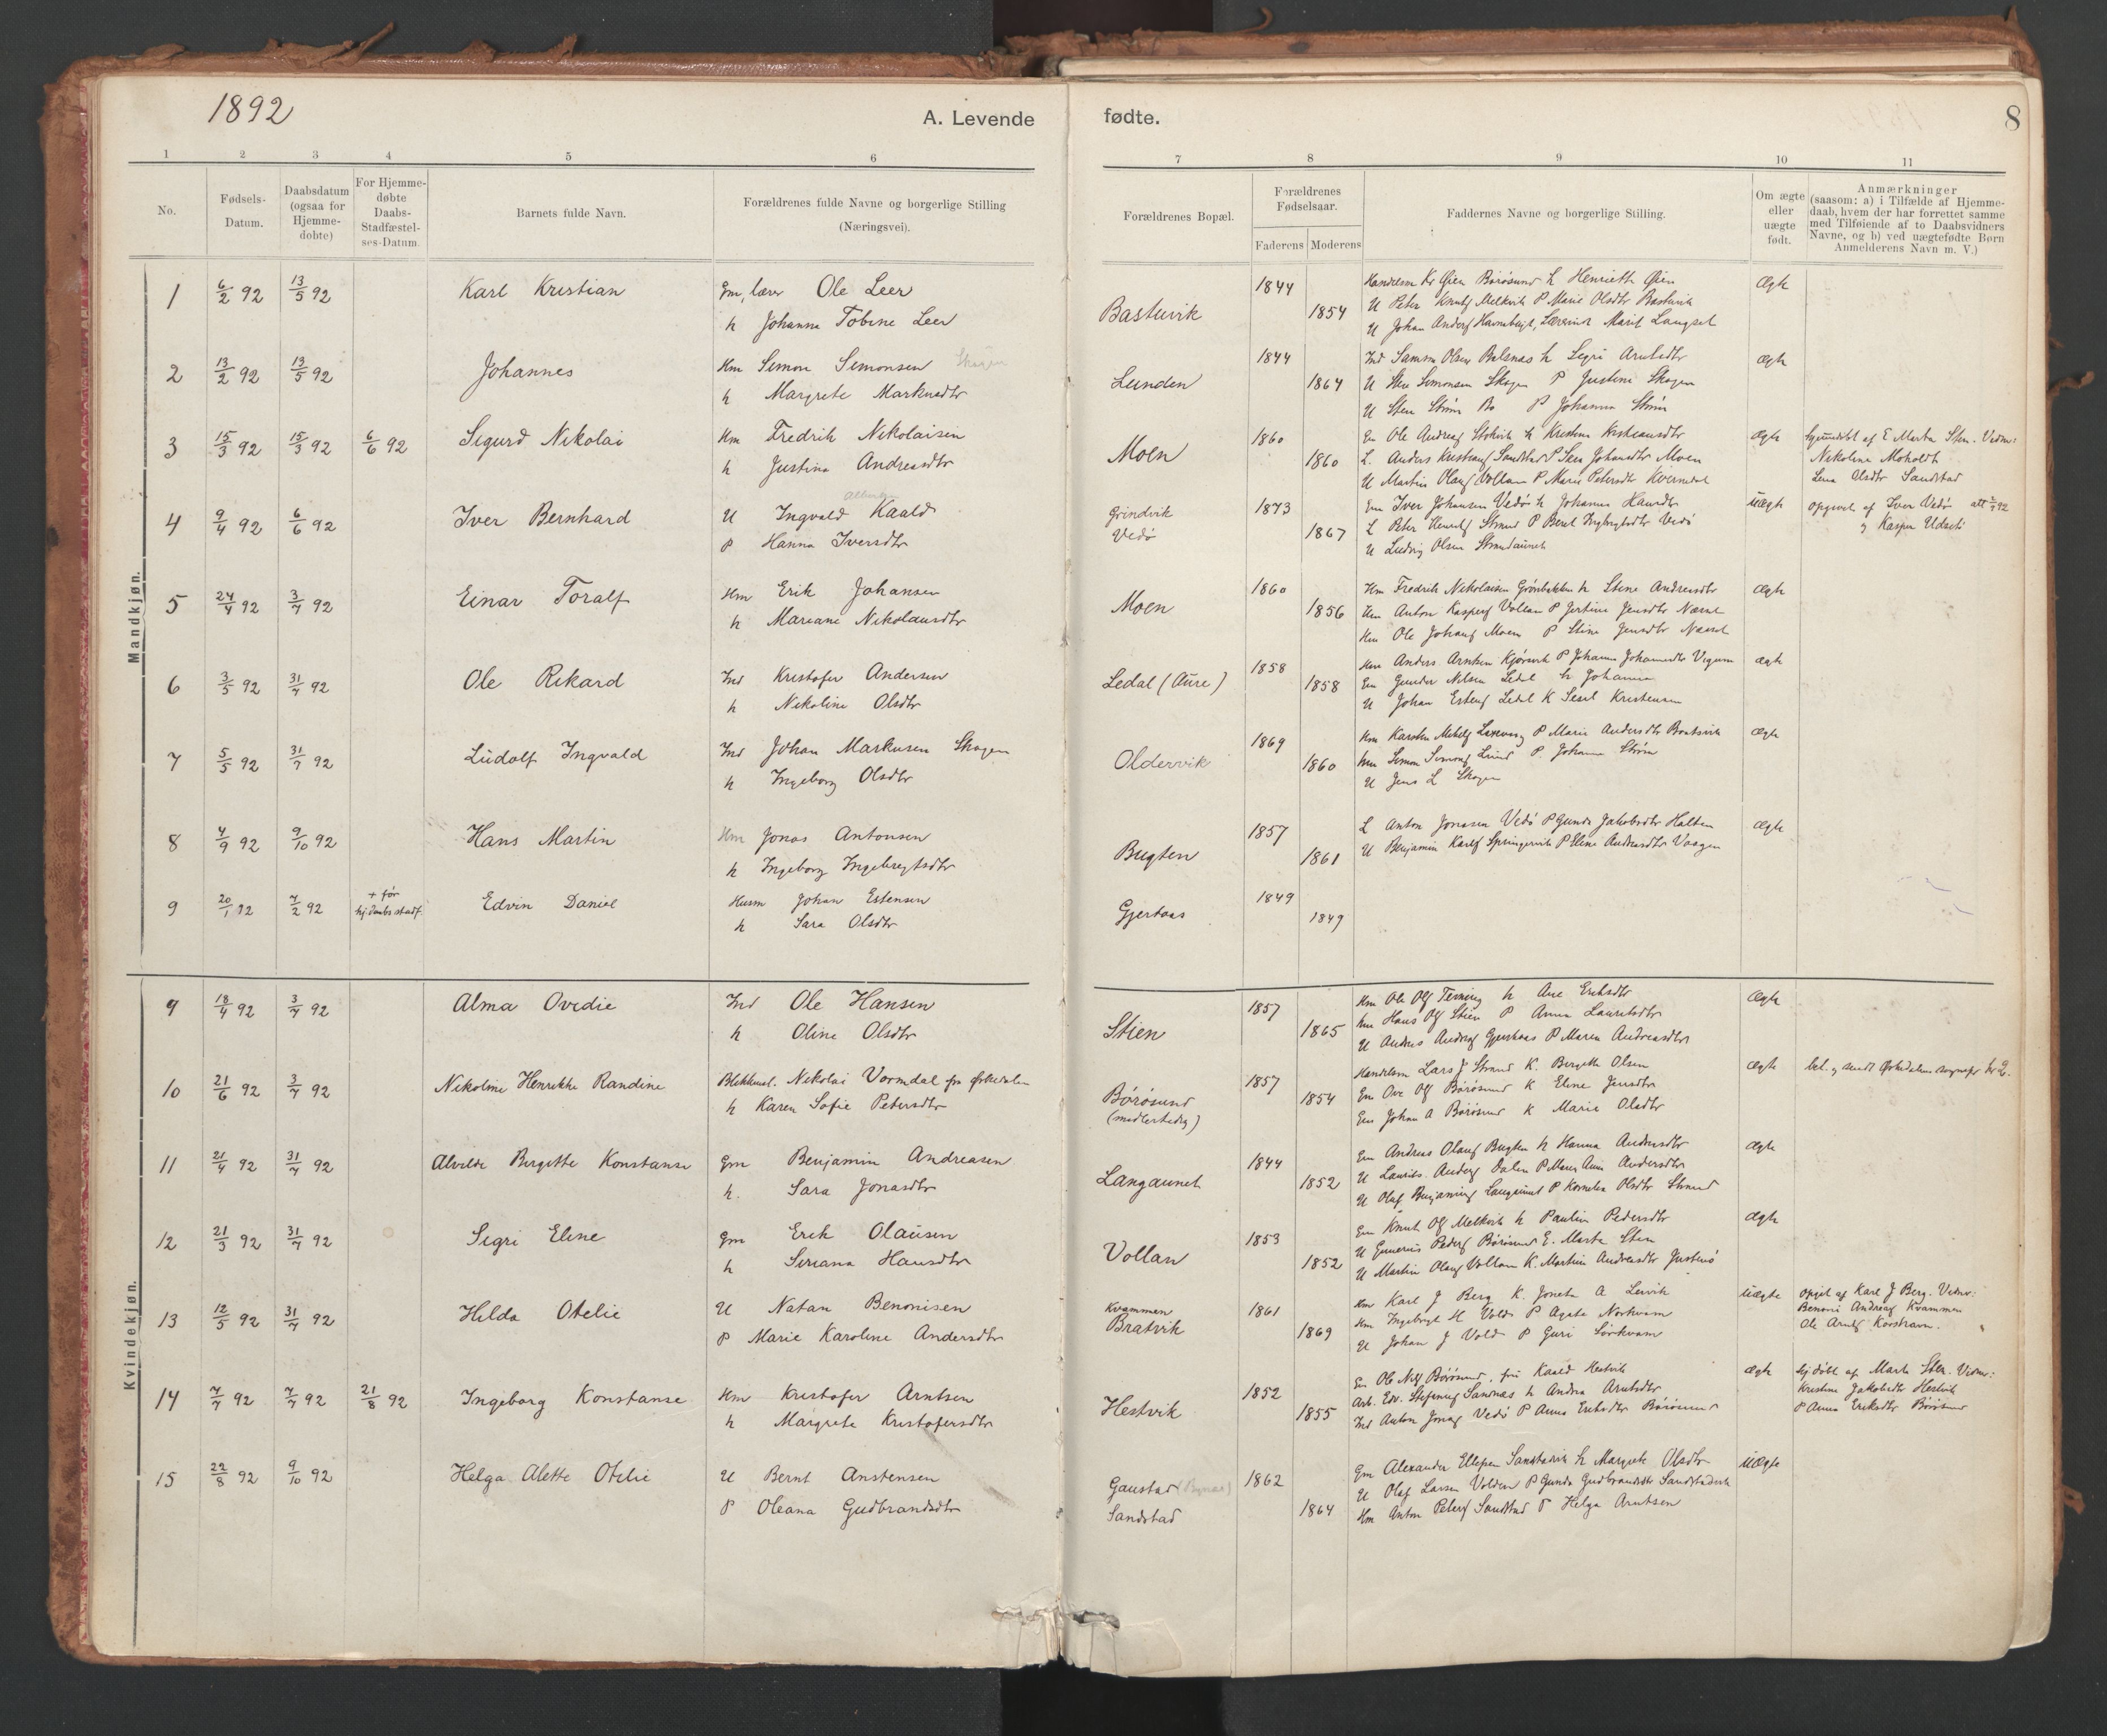 1892
A. Levende fødte.
8
1 2 3 4 5 6 7 8 9 10 11
No.
Fødsels-
Datum.
Daabsdatum
(ogsaa for
Hjemme-
døbte)
For Hjemme-
døbte
Daabs-
Stadfæstel-
ses-Datum.
Barnets fulde Navn.
Forældrenes fulde Navne og borgerlige Stilling
(Næringsvei).
Forældrenes Bopæl.
Forældrenes
Fødselsaar.
Faderens
Moderens
Faddernes Navne og borgerlige Stilling.
Om ægte
eller
uægte
født.
Anmærkninger
(saasom: a) i Tilfælde af Hjemme-
daab, hvem der har forrettet samme
med Tilføiende af to Daabsvidners
Navne, og b) ved uægtefødte Børn
Anmelderens Navn m. V.)
Mandkjøn.
1 6/2 92 13/5 92 Karl Kristian Gm, lærer Ole Leer
h Johanna Tobine Leer
Bastuvik 1844 1854 Ægte
Handelsm Kr Øien Børøsund h Henriette Øien
U Peter Knuts Melkvik P Marie Olsdtr Bastuvik
U Johan Anders Havnebugt, Lærerinde Marit Langset
2 13/2 92 13/5 92 Johannes Hm Simon Simonsen Skagen
h Margrete Markusdtr
Lunden 1844 1864 ægte
Ind Samson Olsen Balsnas h Segri Arntsdtr
U Sten Simonsen Skagen P Justine Skagen
U Sten Strøm Bo P Johanna Strøm
3 15/3 92 15/3 92 6/6 92 Sigurd Nikolai Hm Fredrik Nikolaisen
h Justina Andreasdtr
Moen 1860 1860 Ægte
Em Ole Andreas h Kristine Kristiansdtr
L. Anders Sandstad P Moen
U Martin Olaus Vollan P Marie Petersdtr Kverndal
af E Marta Sten. Vidn:
Nikoline Moholdt
Lena Olsdtr Sandstad
4 9/4 92 6/6 92 Iver Bernhard U Ingvald Kaald
P Hanna Iversdtr
Grindvik
Vedø
1873 1867 uægte
Em Iver Johansen Vedø h Johanna Hansdtr
L Peter Strand P Beret Ingbrigtsdtr Vedø
U Ludvig Olsen Strandaunet
opgivet af Iver Vedø
og Kasper Udseti
5 24/4 92 3/7 92 Einar Toralf Hm Erik Johansen
h Mariane Nikolausdtr
Moen 1860 1856 ægte
Hm Fredrik Nikolaisen Grønbakken h Stine Andreasdtr
Hm Anton Kaspers Vollan P Jertine Jensdtr Næsset
Hm Ole Johans Moen P Stine Jensdtr Næsset
6 3/5 92 31/7 92 Ole Rikard Ind Kristofer Andersen
h Nikoline Olsdtr
Ledal (Aure) 1858 1858 ægte
Hm Anders Arntsen Kjørsvik P Johanna Johannesdtr
Em Gunder Nilsen Ledal h Johanna
U Johan Estens Ledal K Sesel Kristensen
7 5/5 92 31/7 92 Ludolf Ingvald Ind Johan Markusen Skagen
h Ingeborg Olsdtr
Oldervik 1869 1860 ægte
Hm Karsten P Marie Andersdtr Bratsvik
Hm Simon Simons Lund P. Johanna Strøm
U Jens L Skagen
8 4/9 92 9/10 92 Hans Martin Hm Jonas Antonsen
h Ingeborg Ingebregtsdtr
Bugten 1857 1861 ægte
L Anton Jonasen Vedø P Gunda Jakobsdtr Halten
U Benjamin Karls Springervik P Eline Andreasdtr Vaagen
9 20/1 92 7/2 92 + før
hj.daabs stadf.
Edvin Daniel Husm Johan Estensen
h Sara Olsdtr
Gjertaas 1849 1849
Kvindekjøn.
9 18/4 92 3/7 92 Alma Ovidie Ind Ole Hansen
h Oline Olsdtr
Stien 1857 1865 Ægte
Hm Ole Ols Terning h Ane Eriksdtr
Hm Hans Ols Stien P Anna Lauritsdtr
U Anders Andreas Gjertaas P Maren Andreasdtr
10 21/6 92 3/7 92 Nikoline Henrikke Randine Blikkensl. Nikolai Vormdal fra Orkedalen
h Karen Sofie Petersdtr
Børøsund
(midlertidig)
1857 1854 ægte
Handelsm Lars J Strand K. Bergitte Olsen
Em Ove Ols Børøsund K Eline Jensdtr
Em Johan A Børøsund K Marie Olsdtr
11 21/4 92 31/7 92 Alvilde Bergitte Konstanse Gm Benjamin Andreasen
h. Sara Jonasdtr
Langaunet 1844 1852 ægte
Em Andreas Olaus Bugten h Hanna Andreasdtr
U Laurits Anders Dalen P Maren Anna Andersdtr
U Olaf Benjamins Langaunet P Kornelia Olsdtr Strand
12 21/3 92 31/7 92 Segri Eline Gm Erik Olausen
h Siriana Hansdtr
Vollan 1853 1852 ægte
Em Knut Ols Melkvik h Pauline Pedersdtr
U Gunerius Peders Børøsund E. Marta Sten
U Martin Olaus Vollan K. Martine Andreasdtr Justenø
13 12/5 92 31/7 92 Hilda Otelie U Natan Benonisen
P Marie Karoline Andersdtr
Kvammen
Bratvik
1861 1869 uægte
Hm Karl J Berg K. Joneta A Leirvik
Hm Ingebrigt H Vold P Agata Nordkvam
U Johan J Vold P Guri Sørkvam
opgit af Karl J Berg. Vidne:
Benoni Andreas Kvammen
Ole Arnts Korsravn.
14 7/7 92 7/7 92 21/8 92 Ingeborg Konstanse Hm Kristofer Arntsen
h Margrete Kristofersdtr
Hestvik 1852 1855 ægte
Em Ole Nils Børøsund, fru Kaald Hestvik
Arb. Edv. Stefanus Sandnas h Andrea Arntsdtr
Ind Anton Jonas Vedø P Anna Eriksdtr Børøsund
hj døbt af Marta Sten. Vidner:
Kristine Jakobsdtr Hestvik
P Anna Eriksdtr Børøsund
15 22/8 92 9/10 92 Helga Alette Otelie U Bernt Anstensen
P Oleana Gudbrandsdtr
Gaustad (Bynes)
Sandstad
1862 1864 uægte
Gm Alexander Ellefsen Sandstadvik h Margrete Olsdtr
U Olaf Larsen Volden P Gunda Gudbrandsdtr Sandstadvik
Hm Anton Peters Sandstad P Helga Arntsen